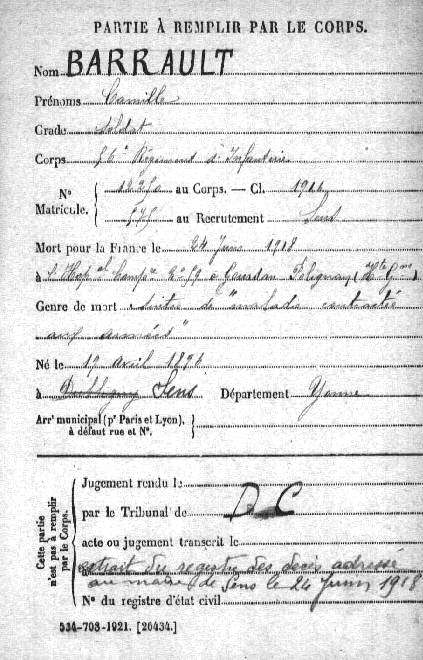 PARTIE À REMPLIR PAR LE CORPS.
Nom BARRAULT
Prénoms Camille
Grade Soldat
Corps Régiment d'Infanterie
N° Matricule. au Corps. — Cl. 1914
575 au Recrutement Sens
Mort pour la France le 24 Juin 1918
à Gourdan Polignan (Hte Gne)
Genre de mort suite de "maladie contractée
aux armées"
Né le avril 1894
à Sens Département Yonne
Arrt municipal (pr Paris et Lyon),
à défaut rue et N°.
Cette partie n'est pas à remplir par le Corps.
Jugement rendu le
par le Tribunal de D C
acte ou jugement transcrit le
extrait du registre des décès adressé
au maire de Sens le 24 Juin 1918
N° du registre d'état civil
534-708-1921. [20434.]